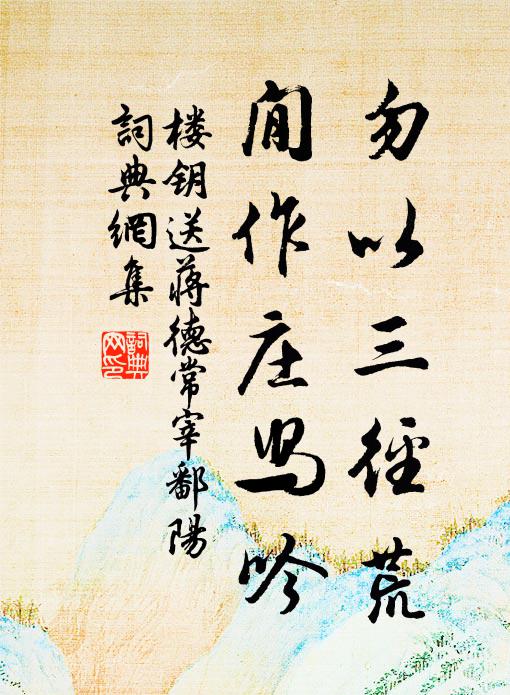 勿以三徑荒
閒作庄舄吟
楼钥送蔣德常宰鄱陽
詞典網集
詞典网印